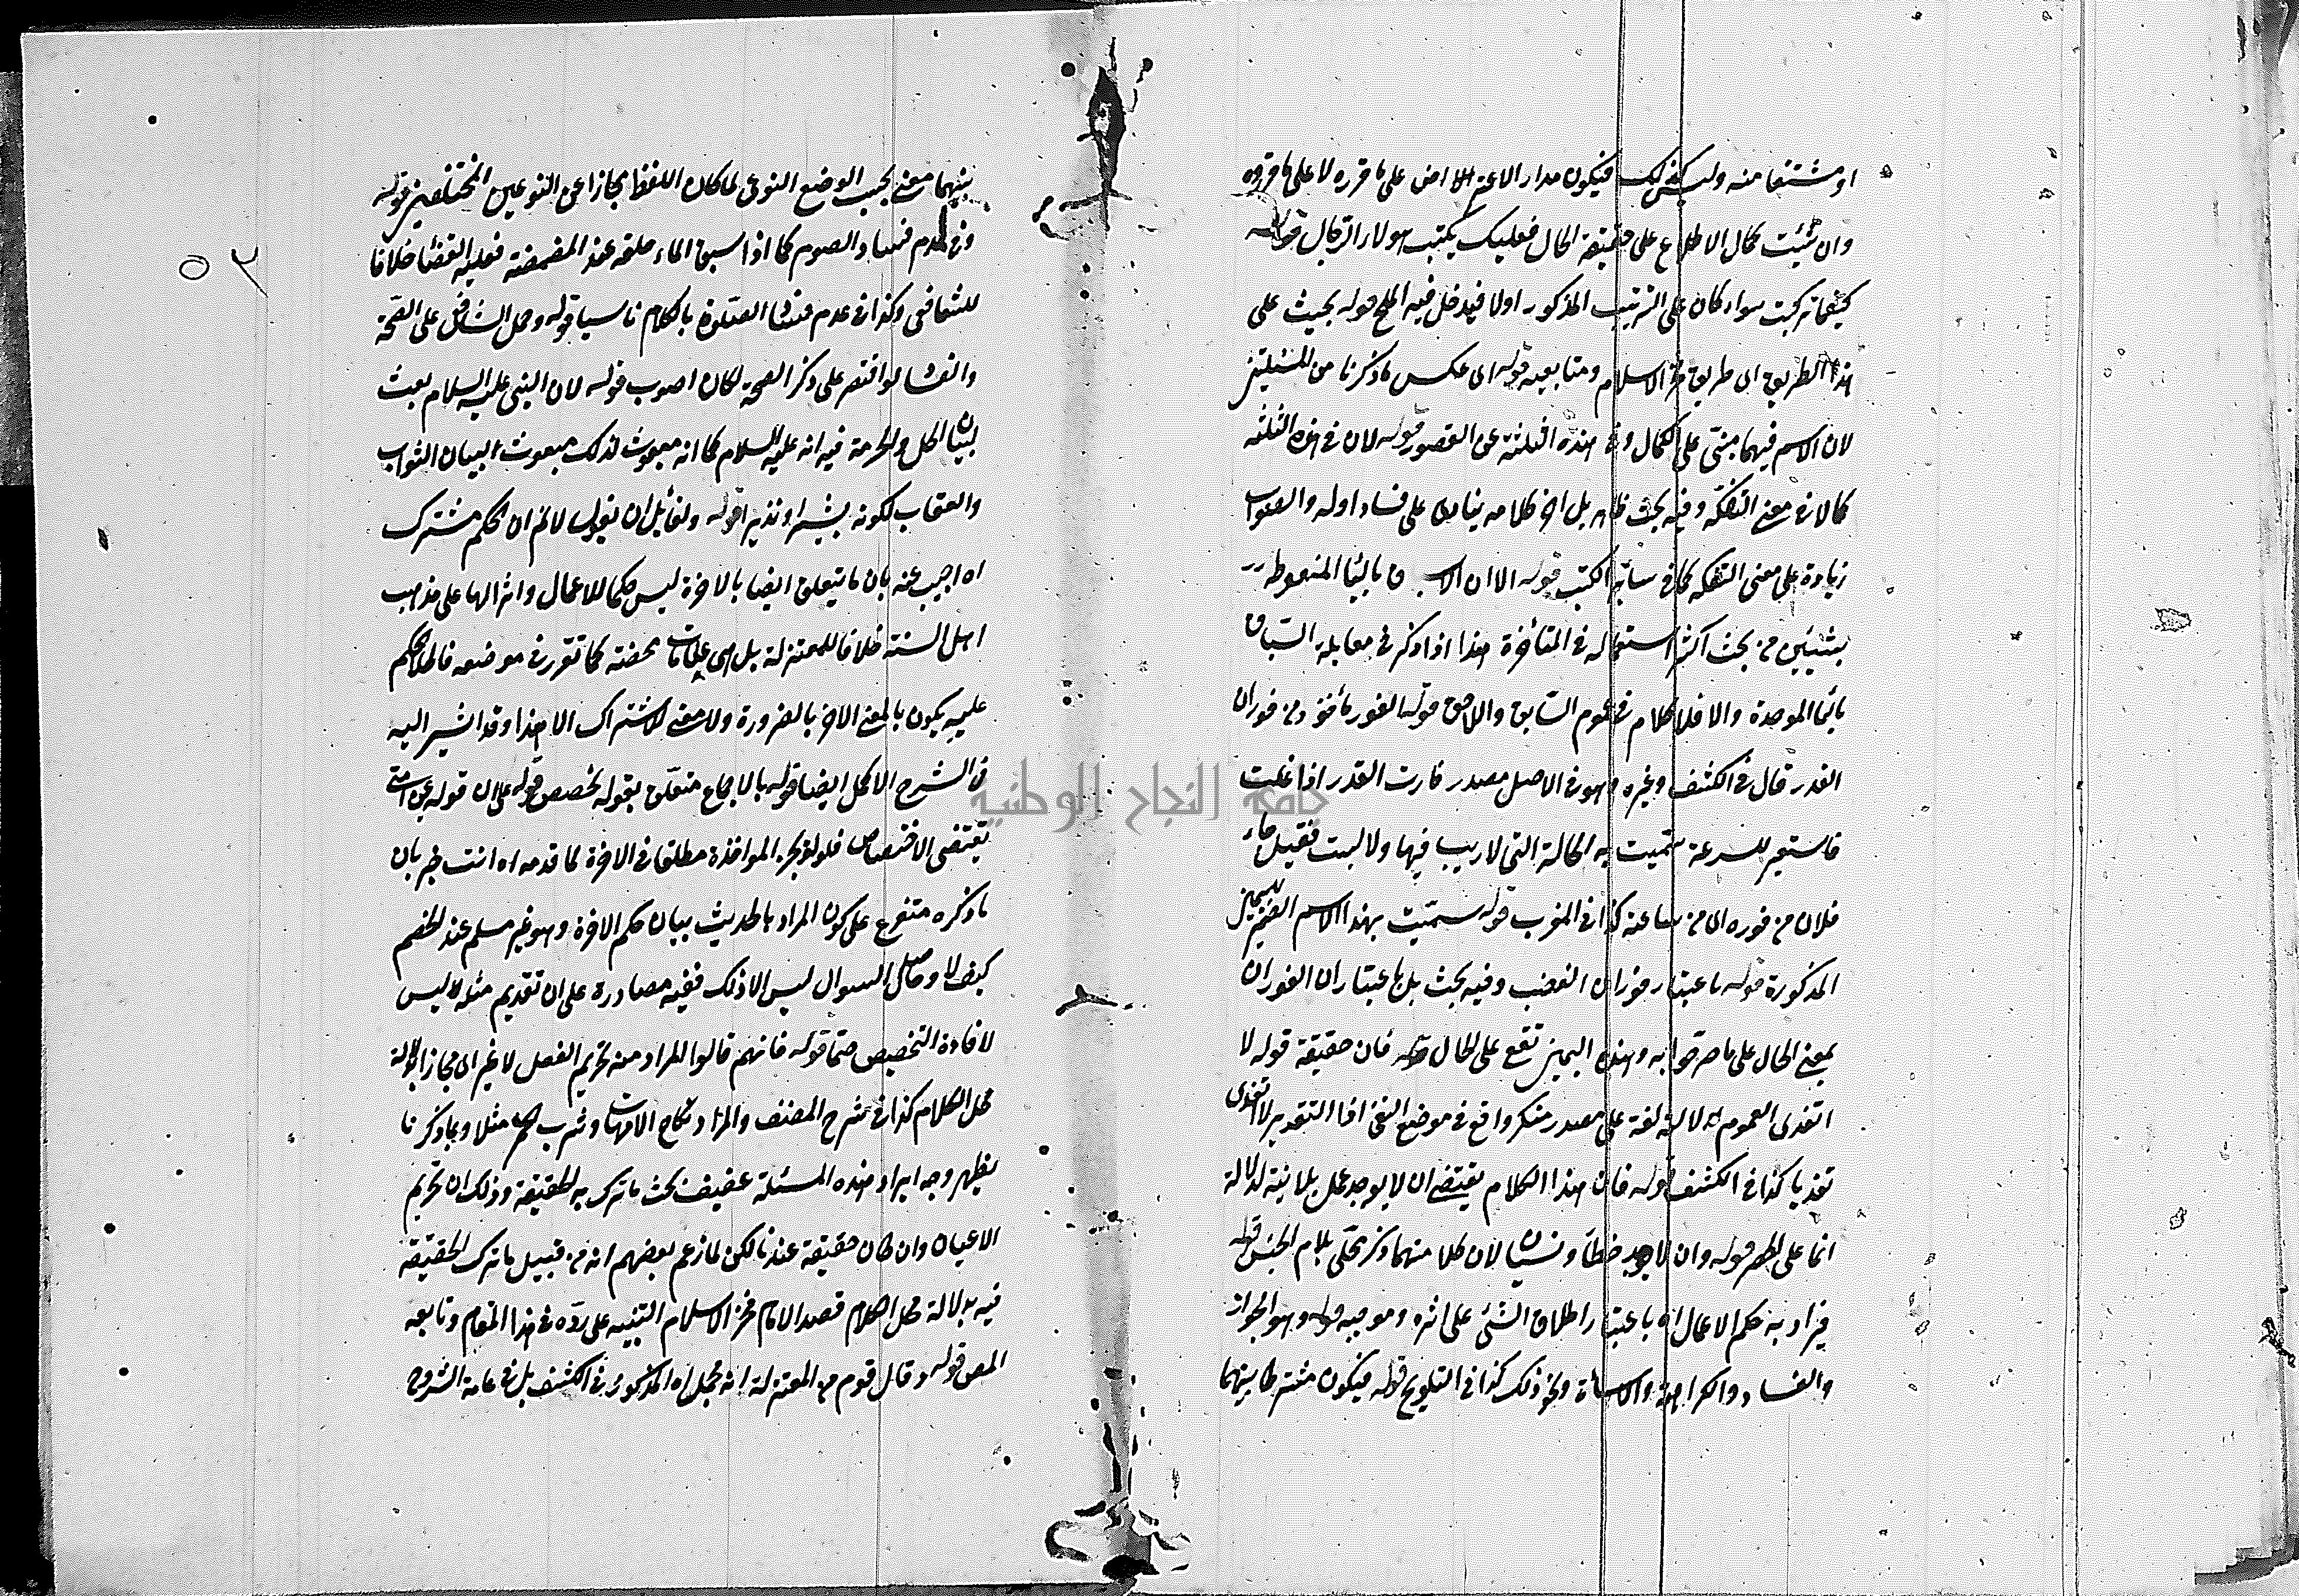 او مشتقا منه وليس كذلك فيكون مدار الاعتراض على ما قرره لا على ما قرروه
وان شئت كمال الاطلاع على حقيقة الحال فعليك بكتب هؤلاء الرجال قوله
كيفما تركبت سواء كان على الترتيب المذكور اولا فيدخل فيه الملح قوله بحيث على
هذا الطريق اى طريق فخر الاسلام ومتابعيه قوله اى عكس ما ذكرنا من المسئلتين
لان الاسم فيهما مبنى على الكمال وفى هذه الثلثة عن القصور قوله لان فى هذه الثلثة
كمالا فى معنى التفكه وفيه بحث ظاهر بل اخر كلامه ينادى على فساد اوله والصواب
زيادة على معنى التفكه كما فى سائر الكتب قوله الا ان الاسباق بالياء المنقوطة
بثنتين من تحت اكثر استعماله فى المتأخرة هذا اذا ذكر فى مقابلة السباق
بالباء الموحدة والا فلا كلام فى عموم السابق واللاحق قوله الفور مأخوذ من فوران
القدر قال فى الكشف وغيره وهو فى الاصل مصدر فارت القدر اذا غلت
فاستعير للسرعة ثم سميت به الحالة التى لا ريب فيها ولا لبث فقيل جاء
فلان من فوره اى من ساعته كذا فى المغرب قوله سميت بهذا الاسم الضمير لليمين
المذكورة قوله باعتبار فوران الغضب وفيه بحث بل باعتبار ان الفوران
بمعنى الحال على ما صرحوا به وهذه اليمين تقع على الحال قوله فان حقيقة قوله لا
اتغدى العموم لدلالته لغة على مصدر منكر واقع فى موضع النفى اذ التقدير لا اتغدى
تغديا كذا فى الكشف قوله فان هذا الكلام يقتضى ان لا يوجد عمل بلا نية لدلالة
انما على الحصر قوله وان لا يوجد خطأ ونسيان لان كلا منهما ذكر محلى بلام الجنس قوله
فيراد به حكم الاعمال اه باعتبار اطلاق الشئ على اثره وموجبه قوله وهو الجواز
والفساد والكراهة والاساءة ونحو ذلك كذا فى التلويح قوله فيكون مشتركا بينهما
بينهما معنى بحسب الوضع النوعى لما كان اللفظ مجازا عن النوعين المختلفين قوله
وفى عدم فساد الصوم كما اذا سبق الماء حلقه عند المضمضة فعليه القضاء خلافا
للشافعى وكذا فى عدم فساد الصلوة بالكلام ناسيا قوله وحمل الشافعى على الصحة
والفساد لو اقتصر على ذكر الصحة لكان اصوب قوله لان النبى عليه السلام بعث
لبيان الحل والحرمة فيه انه عليه السلام كما انه مبعوث لذلك مبعوث لبيان الثواب
والعقاب لكونه بشيرا ونذيرا قوله ولقائل ان يقول لا نم ان الحكم مشترك
اه اجيب عنه بان ما يتعلق ايضا بالآخرة ليس حكما للاعمال واثرا لها على مذهب
اهل السنة خلافا للمعتزلة بل هى علامات محضة كما تقرر فى موضعه فاطلاق الحكم
عليه يكون بالمعنى الاخر بالضرورة ولا معنى للاشتراك الا هذا وقد اشير اليه
فى الشرح الاكمل ايضا قوله بالاجماع متعلق بقوله تخصص قوله على ان قوله عن امتى
يقتضى الاختصاص فلو لم يجز المواخذة مطلقا فى الاخرة لما قدمه اه انت خبير بان
ما ذكره متفرع على كون المراد بالحديث بيان حكم الاخرة وهو غير مسلم عند الخصم
كيف لا وحاصل السوال ليس الا ذلك ففيه مصادرة على ان تقديم مثله ليس
لافادة التخصيص حتما قوله فانهم قالوا المراد منه تحريم الفعل لا غير اى مجازا بدلالة
محل الكلام كذا فى شرح المصنف والمراد نكاح الامهات وشرب الخمر مثلا وبما ذكرنا
يظهر وجه ايراد هذه المسئلة عقيف بحث ما ترك به الحقيقة وذلك ان تحريم
الاعيان وان كان حقيقة عندنا لكن لما زعم بعضهم انه من قبيل ما ترك الحقيقة
فيه بدلالة محل الكلام قصد الامام فخر الاسلام التنبيه على رده فى هذا المقام وتابعه
المص قوله وقال قوم من المعتزلة انه مجمل اه المذكور فى الكشف بل فى عامة الشروح
٥٢
جامعة النجاح الوطنية